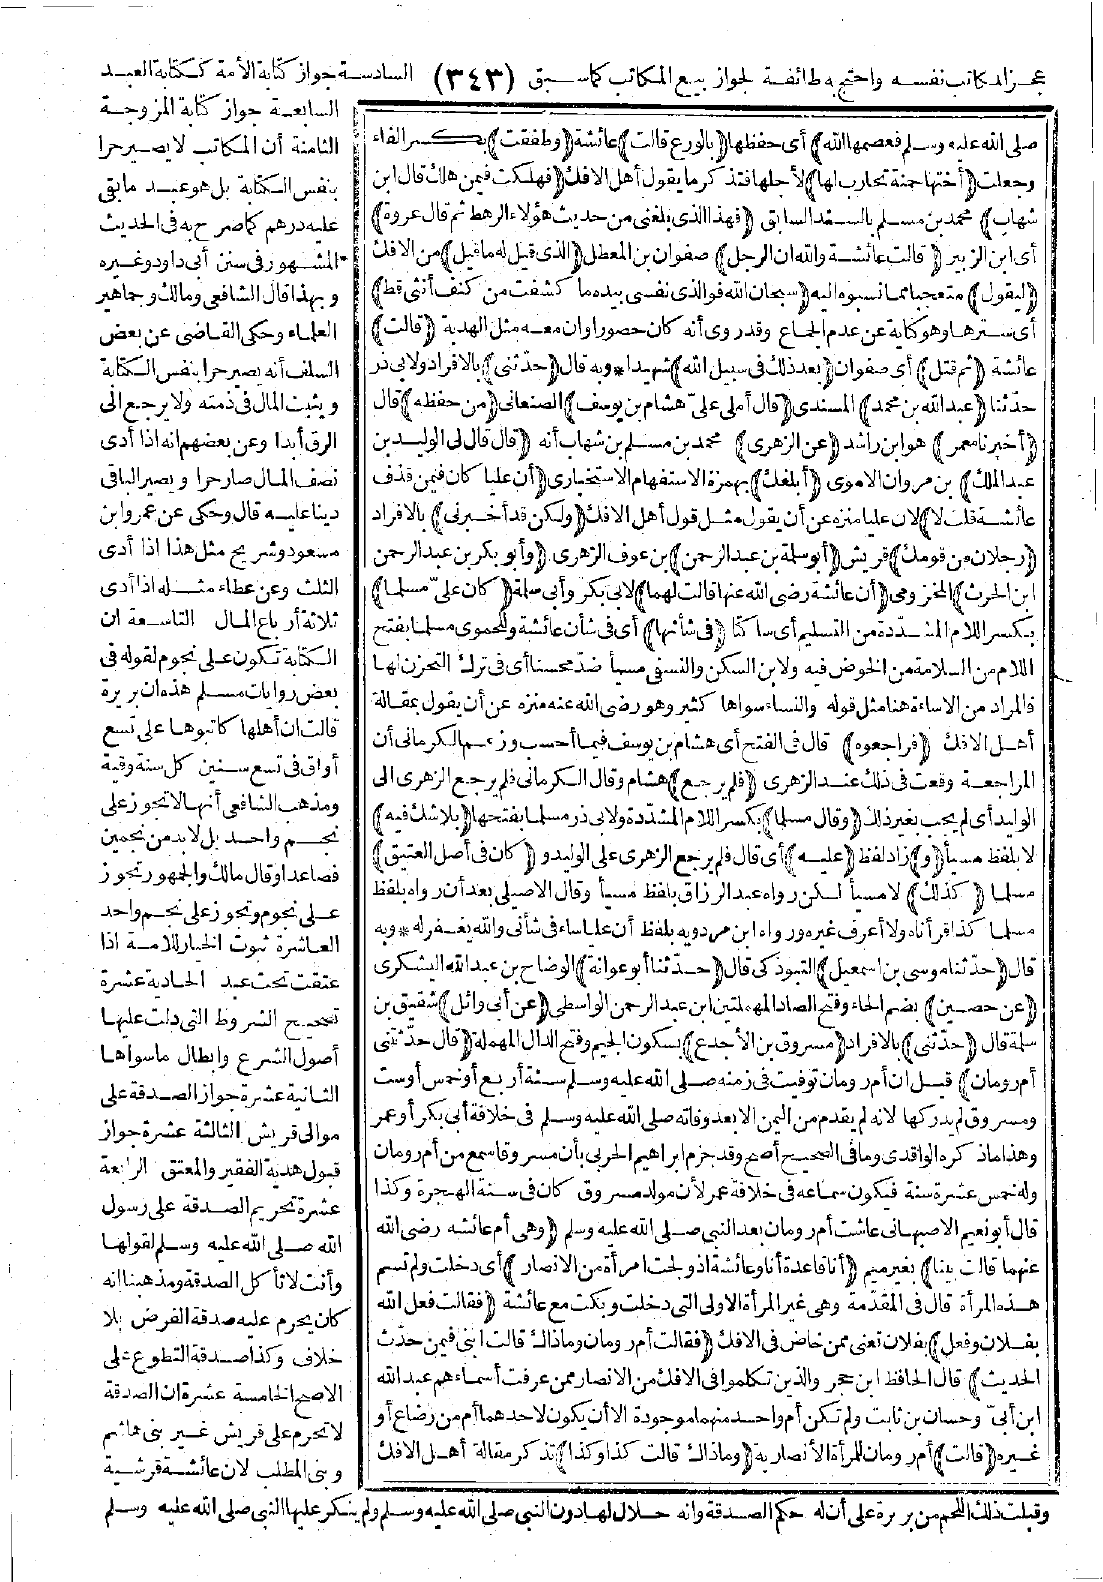 عجز المكاتب نفسه واحتج به طائفة لجواز بيع المكاتب كما سبق (٣٤٣) السادسة جواز كتابة الأمة ككتابة العبد
صلى الله عليه وسلم فعصمها الله) أى حفظها (بالورع قالت) عائشة (وطفقت) بكسر الفاء
وجعلت (أختها حمنة تحارب لها) لأجلها فتذكر ما يقول أهل الافك (فهلكت فيمن هلك قال ابن
شهاب) محمد بن مسلم بالسند السابق (فهذا الذى بلغنى من حديث هؤلاء الرهط ثم قال عروة)
أى ابن الزبير (قالت عائشة والله ان الرجل) صفوان بن المعطل (الذى قيل له ما قيل) من الافك
(ليقول) متعجبا مما نسبوه اليه (سبحان الله فوالذى نفسى بيده ما كشفت من كنف أنثى قط)
أى سترها وهو كناية عن عدم الجماع وقد روى أنه كان حصورا وان معه مثل الهدبة (قالت)
عائشة (ثم قتل) أى صفوان (بعد ذلك فى سبيل الله) شهيدا * وبه قال (حدّثنى) بالافراد ولابى ذر
حدّثنا (عبد الله بن محمد) المسندى (قال أملى علىّ هشام بن يوسف) الصنعانى (من حفظه) قال
(أخبرنا معمر) هو ابن راشد (عن الزهرى) محمد بن مسلم بن شهاب أنه (قال قال لى الوليد بن
عبد الملك) بن مروان الاموى (أبلغك) بهمزة الاستفهام الاستخبارى (أن عليا كان فيمن قذف
عائشة قلت لا) لان عليا منزه عن أن يقول مثل قول أهل الافك (ولكن قد أخبرنى) بالافراد
(رجلان من قومك) قريش (أبو سلمة بن عبد الرحمن) بن عوف الزهرى (وأبو بكر بن عبد الرحمن
ابن الحرث) المخزومى (أن عائشة رضى الله عنها قالت لهما) لابى بكر وأبى سلمة (كان علىّ مسلما)
بكسر اللام المشدّدة من التسليم أى ساكتا (فى شأنها) أى فى شأن عائشة وللحموى مسلما بفتح
اللام من السلامة من الخوض فيه ولابن السكن والنسفى مسيأ ضدّ محسنا أى فى ترك التحزن لها
فالمراد من الاساءة هنا مثل قوله والنساء سواها كثير وهو رضى الله عنه منزه عن أن يقول بمقالة
أهل الافك (فراجعوه) قال فى الفتح أى هشام بن يوسف فيما أحسب وزعم الكرمانى أن
المراجعة وقعت فى ذلك عند الزهرى (فلم يرجع) هشام وقال الكرمانى فلم يرجع الزهرى الى
الوليد أى لم يجب بغير ذلك (وقال مسلما) بكسر اللام المشدّدة ولابى ذر مسلما بفتحها (بلا شك فيه)
لا بلفظ مسيأ (و) زاد لفظ (عليه) أى قال فلم يرجع الزهرى على الوليد و (كان فى أصل العتيق)
مسلما (كذلك) لا مسيأ لكن رواه عبد الرزاق بلفظ مسيأ وقال الاصيلى بعد أن رواه بلفظ
مسلما كذا قرأناه ولا أعرف غيره ورواه ابن مردويه بلفظ أن عليا ساء فى شأنى والله يغفر له * وبه
قال (حدّثنا موسى بن اسمعيل) التبوذكى قال (حدّثنا أبو عوانة) الوضاح بن عبد الله اليشكرى
(عن حصين) بضم الحاء وفتح الصاد المهملتين ابن عبد الرحمن الواسطى (عن أبى وائل) شقيق بن
سلمة قال (حدّثنى) بالافراد (مسروق بن الأجدع) بسكون الجيم وفتح الدال المهملة (قال حدّثتنى
أم رومان) قيل ان أم رومان توفيت فى زمنه صلى الله عليه وسلم سنة أربع أو خمس أو ست
ومسروق لم يدركها لانه لم يقدم من اليمن الا بعد وفاته صلى الله عليه وسلم فى خلافة أبى بكر أو عمر
وهذا ما ذكره الواقدى وما فى الصحيح أصح وقد جزم ابراهيم الحربى بأن مسروقا سمع من أم رومان
وله خمس عشرة سنة فيكون سماعه فى خلافة عمر لأن مولد مسروق كان فى سنة الهجرة وكذا
قال أبو نعيم الاصبهانى عاشت أم رومان بعد النبى صلى الله عليه وسلم (وهى أم عائشة رضى الله
عنهما قالت بينا) بغير ميم (أنا قاعدة أنا وعائشة اذ ولجت امرأة من الانصار) أى دخلت ولم تسم
هذه المرأة قال فى المقدّمة وهى غير المرأة الاولى التى دخلت وبكت مع عائشة (فقالت فعل الله
بفلان وفعل) بفلان تعنى ممن خاض فى الافك (فقالت أم رومان وما ذاك قالت ابنى فيمن حدّث
الحديث) قال الحافظ ابن حجر والذين تكلموا فى الافك من الانصار ممن عرفت أسماءهم عبد الله
ابن أبىّ وحسان بن ثابت ولم تكن أم واحد منهما موجودة الا أن يكون لاحدهما أم من رضاع أو
غيره (قالت) أم رومان للمرأة الأنصارية (وما ذاك قالت كذا وكذا) تذكر مقالة أهل الافك
السابعة جواز كتابة المزوجة
الثامنة أن المكاتب لا يصير حرا
بنفس الكتابة بل هو عبد ما بقى
عليه درهم كما صرح به فى الحديث
المشهور فى سنن أبى داود وغيره
وبهذا قال الشافعى ومالك وجماهير
العلماء وحكى القاضى عن بعض
السلف أنه يصير حرا بنفس الكتابة
ويثبت المال فى ذمته ولا يرجع الى
الرق أبدا وعن بعضهم انه اذا أدى
نصف المال صار حرا ويصير الباقى
دينا عليه قال وحكى عن عمر وابن
مسعود وشريح مثل هذا اذا أدى
الثلث وعن عطاء مثله اذا أدى
ثلاثة أرباع المال التاسعة ان
الكتابة تكون على نجوم لقوله فى
بعض روايات مسلم هذه ان بريرة
قالت ان أهلها كاتبوها على تسع
أواق فى تسع سنين كل سنة وقية
ومذهب الشافعى أنها لا تجوز على
نجم واحد بل لابد من نجمين
فصاعدا وقال مالك والجمهور تجوز
على نجوم وتجوز على نجم واحد
العاشرة ثبوت الخيار للامة اذا
عتقت تحت عبد الحادية عشرة
تصحيح الشروط التى دلت عليها
أصول الشرع وابطال ما سواها
الثانية عشرة جواز الصدقة على
موالى قريش الثالثة عشرة جواز
قبول هدية الفقير والمعتق الرابعة
عشرة تحريم الصدقة على رسول
الله صلى الله عليه وسلم لقولها
وأنت لا تأكل الصدقة ومذهبنا انه
كان يحرم عليه صدقة الفرض بلا
خلاف وكذا صدقة التطوع على
الاصح الخامسة عشرة ان الصدقة
لا تحرم على قريش غير بنى هاشم
وبنى المطلب لان عائشة قرشية
وقبلت ذلك اللحم من بريرة على أن له حكم الصدقة وانه حلال لها دون النبى صلى الله عليه وسلم ولم ينكر عليها النبى صلى الله عليه وسلم